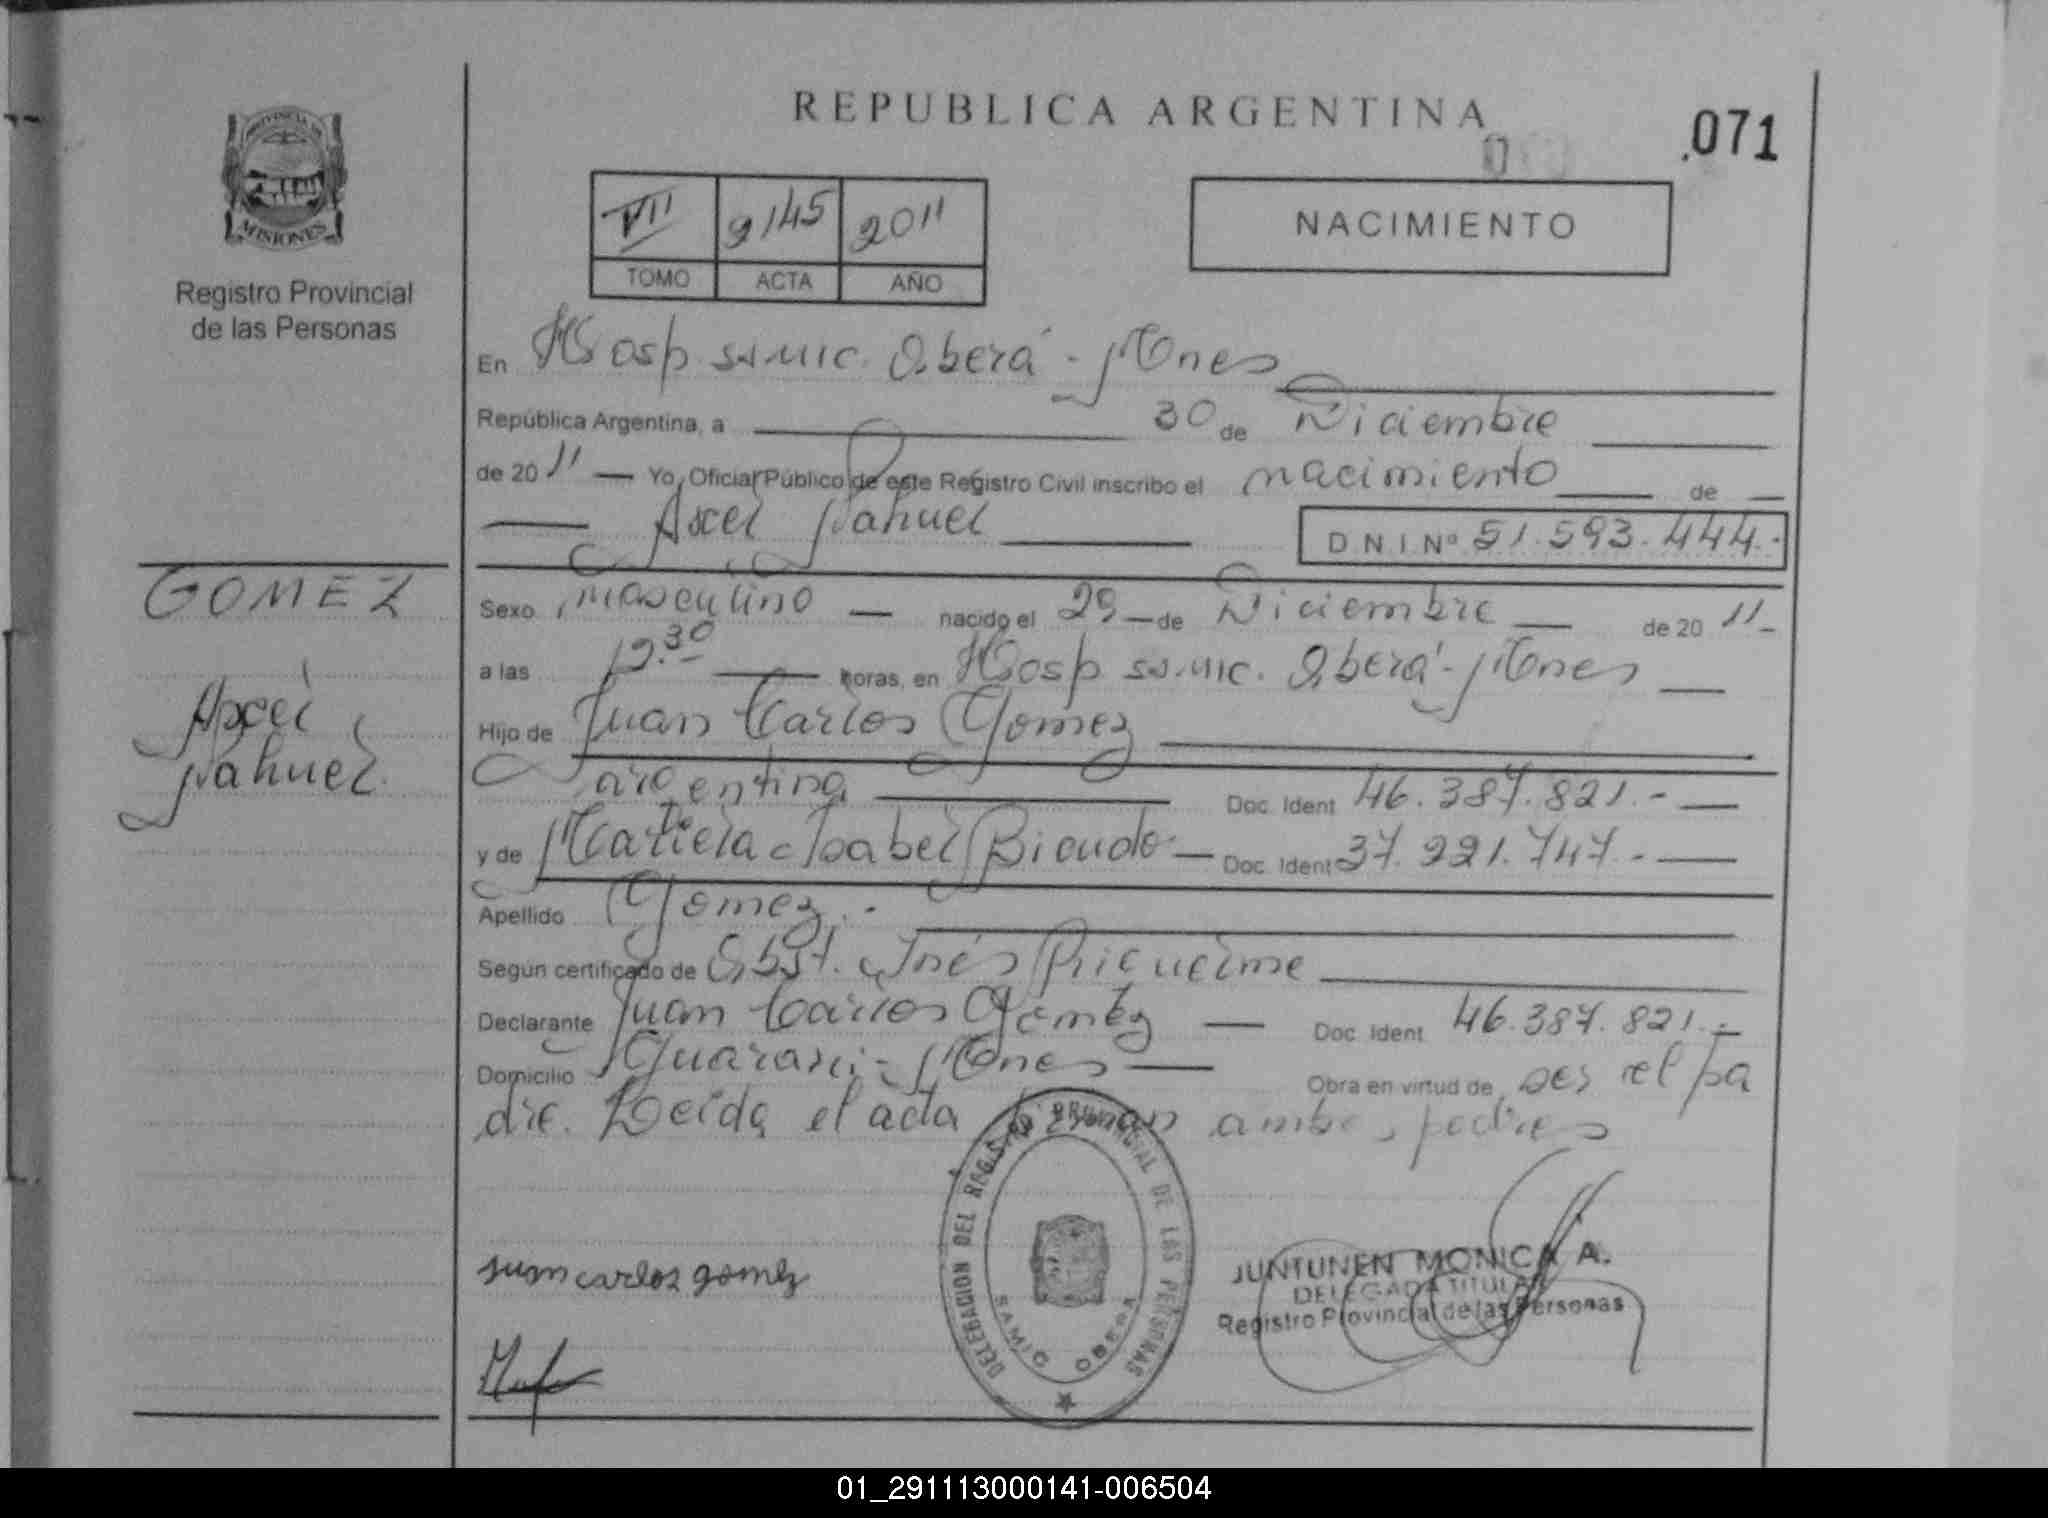 REPUBLICA ARGENTINA
.071
PROVINCIA DE
MISIONES
Registro Provincial
de las Personas
VII 2145 2011
TOMO ACTA AÑO
NACIMIENTO
En Hosp. ss.mic. Oberá - Mnes
República Argentina, a 30 de Diciembre
de 20 11 Yo, Oficial Público de este Registro Civil inscribo el nacimiento de
Axcel Nahuel D N I Nº 51.593.444.-
GOMEZ
Axcel
Nahuel
Sexo masculino nacido el 29 de Diciembre de 20 11
a las 12.30 horas, en Hosp. ss.mic. Oberá - Mnes
Hijo de Juan Carlos Gomez
argentina Doc. Ident 46.387.821.-
y de Mariela Isabel Doc. Ident 37.221.747.-
Apellido Gomez.-
Según certificado de Obst. Inés Riquelme
Declarante Juan Carlos Gomez Doc. Ident 46.387.821.-
Domicilio Guarani - Mnes Obra en virtud de ser el pa
dre. Leída el acta firman ambos padres
juan carlos gomez
DELEGACION DEL REGISTRO PROVINCIAL DE LAS PERSONAS
SAMIC OBERA
JUNTUNEN MONICA A.
DELEGADA TITULAR
Registro Provincial de las Personas
01_291113000141-006504